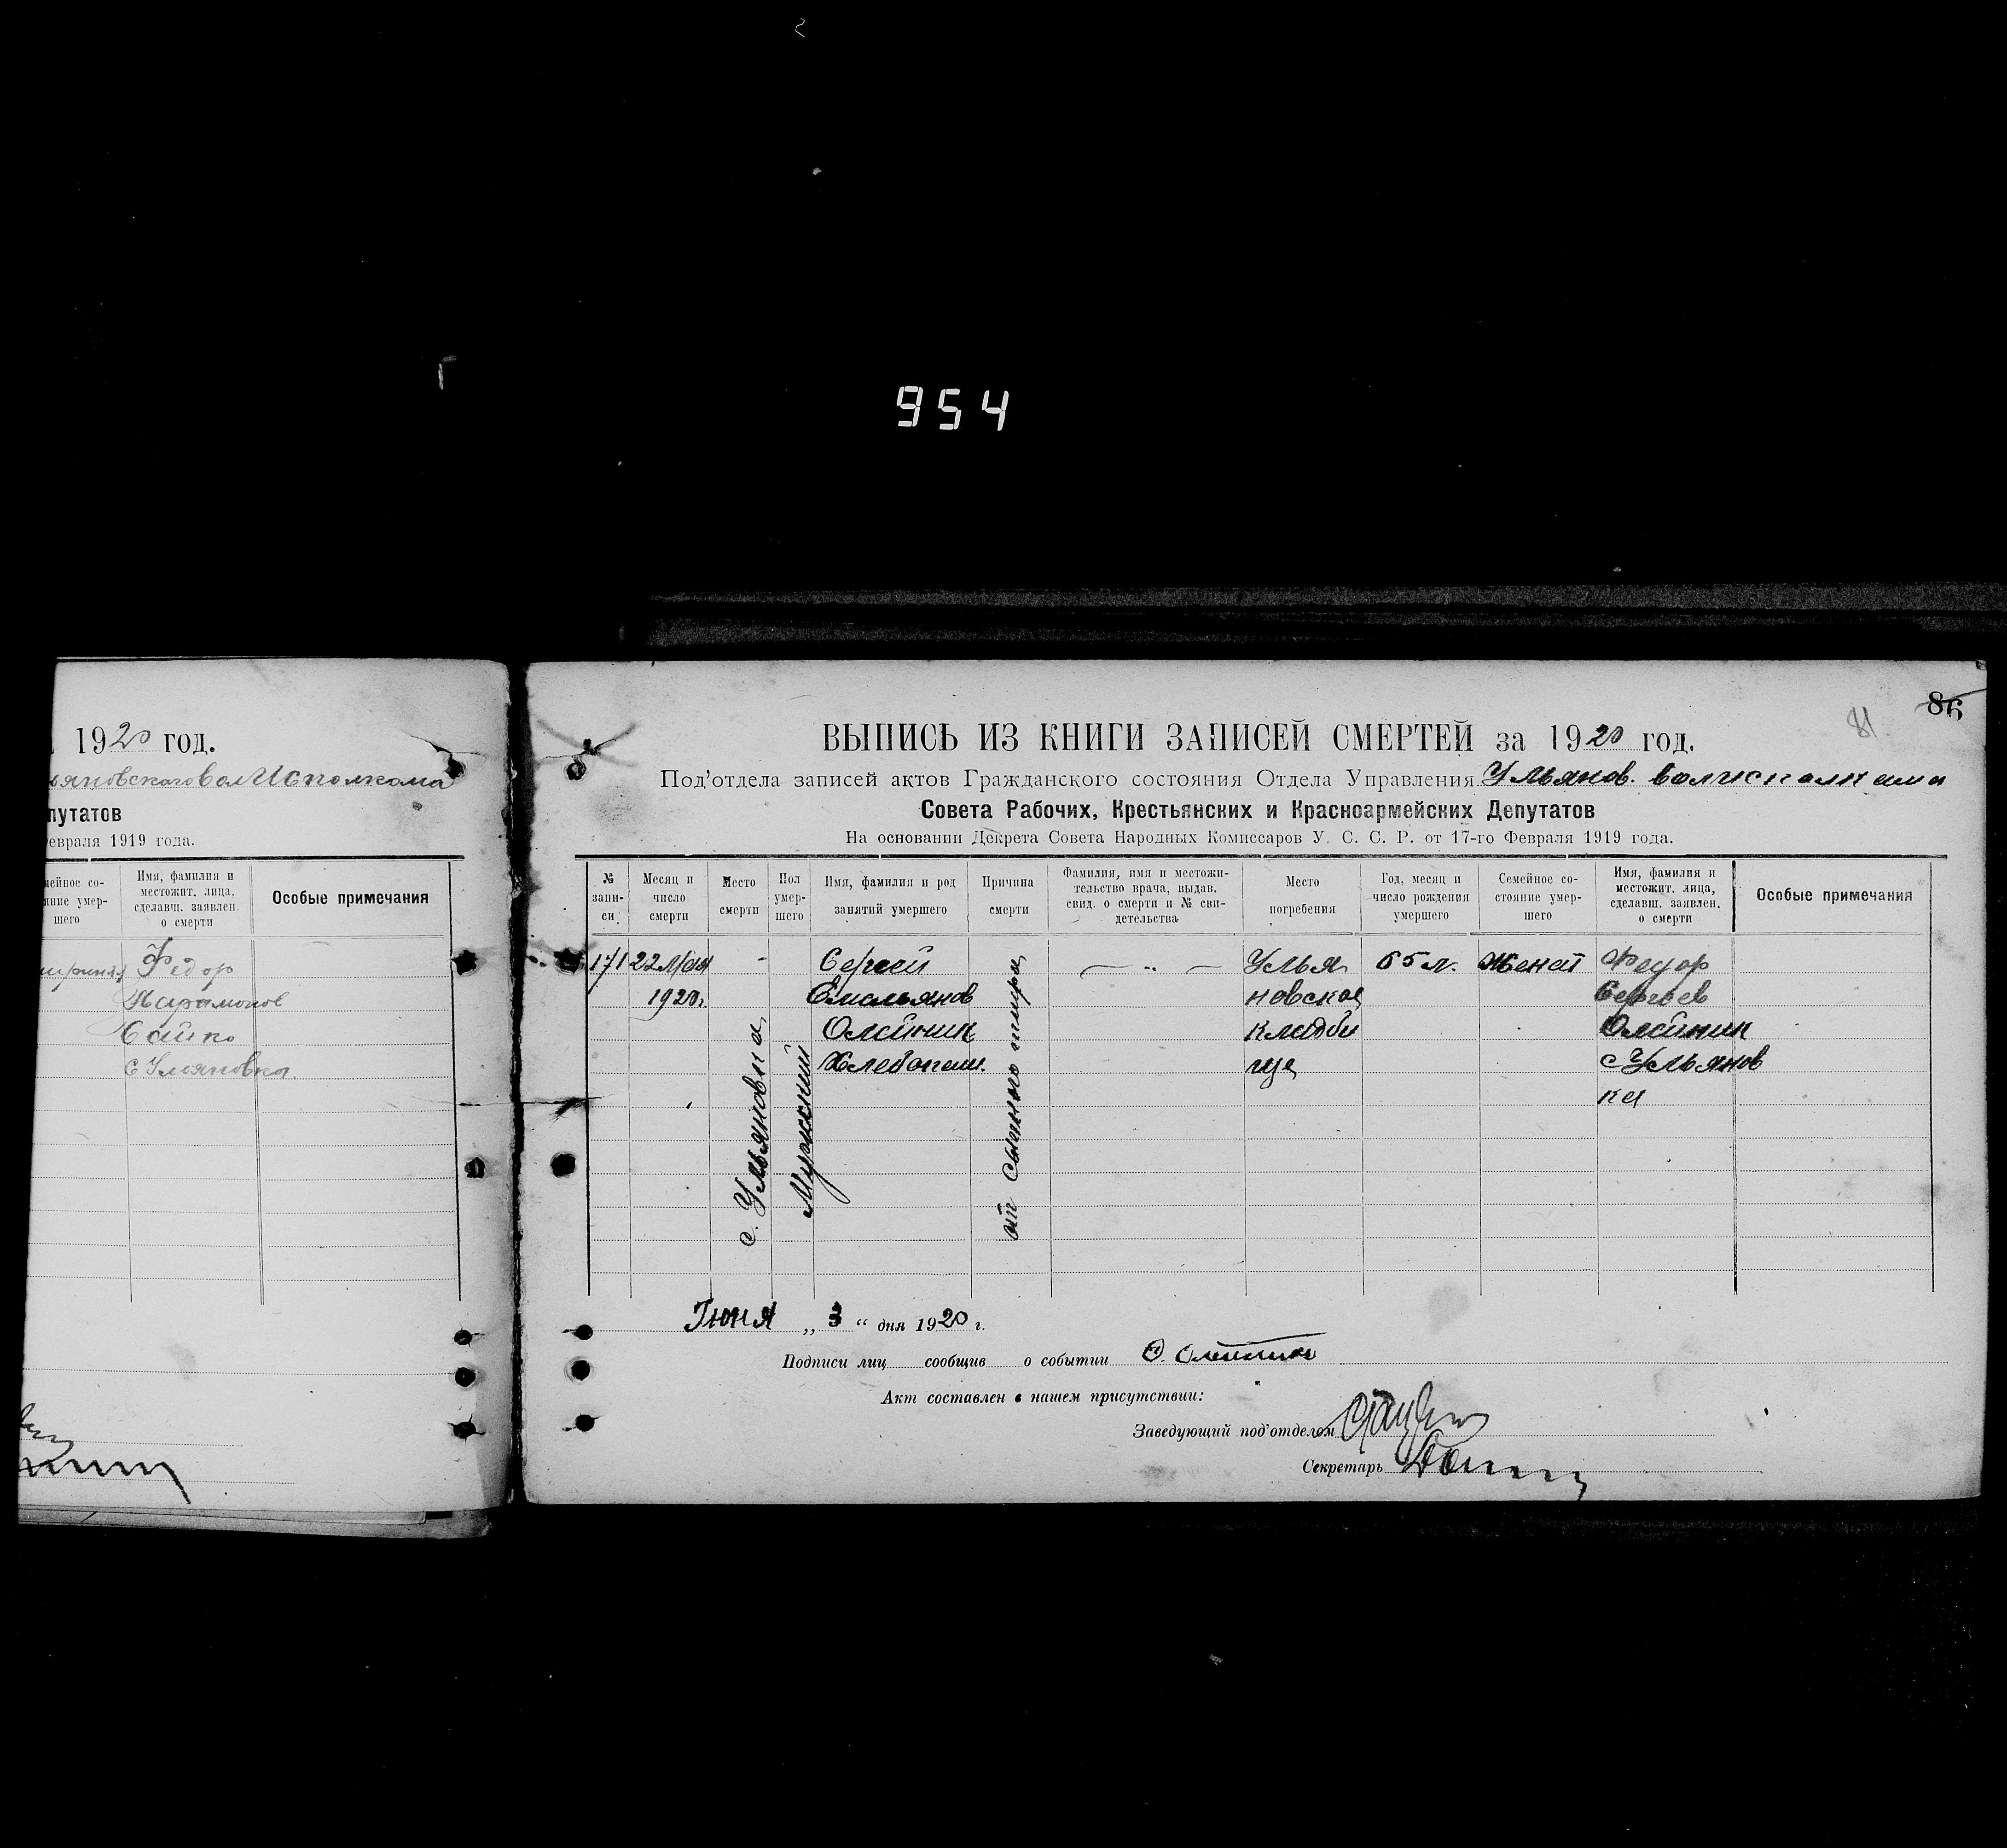 954
19 20 год.
ьяновскаго вол Исполкома
путатов
евраля 1919 года.
мейное со-
яние умер-
шего
Имя, фамилия и
местожит. лица,
сделавш. заявлен.
о смерти
Особые примечания
Федор
Парамонов
Сайко
с Уляновка.
86
81
ВЫПИСЬ ИЗ КНИГИ ЗАПИСЕЙ СМЕРТЕЙ за 1920 год.
Под'отдела записей актов Гражданского состояния Отдела Управления Ульянов. волисполкома
Совета Рабочих, Крестьянских и Красноармейских Депутатов
На основании Декрета Совета Народных Комиссаров У. С. С. Р. от 17-го Февраля 1919 года.
№
запи-
си
Месяц и
число
смерти
Место
смерти
Пол
умер-
шего
Имя, фамилия и род
занятий умершего
Причина
смерти
Фамилия, имя и местожи-
тельство врача, выдав.
свид. о смерти и № сви-
детельства
Место
погребения
Год, месяц и
число рождения
умершего
Семейное со-
стояние умер-
шего
Имя, фамилия и
местожит. лица,
сделавш. заявлен.
о смерти
Особые примечания
171
22 Мая
1920г.
с. Ульяновка
Мужский
Сергей
Емельянов
Олейник
Хлебопаш.
от сыпного тифа
— „ —
Улья
новское
кладби
ще
65 л.
Женат
Федор
Сергеев
Олейник
с Ульянов
ка
Июня „ 3 “ дня 1920 г.
Подписи лиц сообщив о событии Ф. Олейник
Акт составлен в нашем присутствии:
Заведующий под'отделом
Секретарь